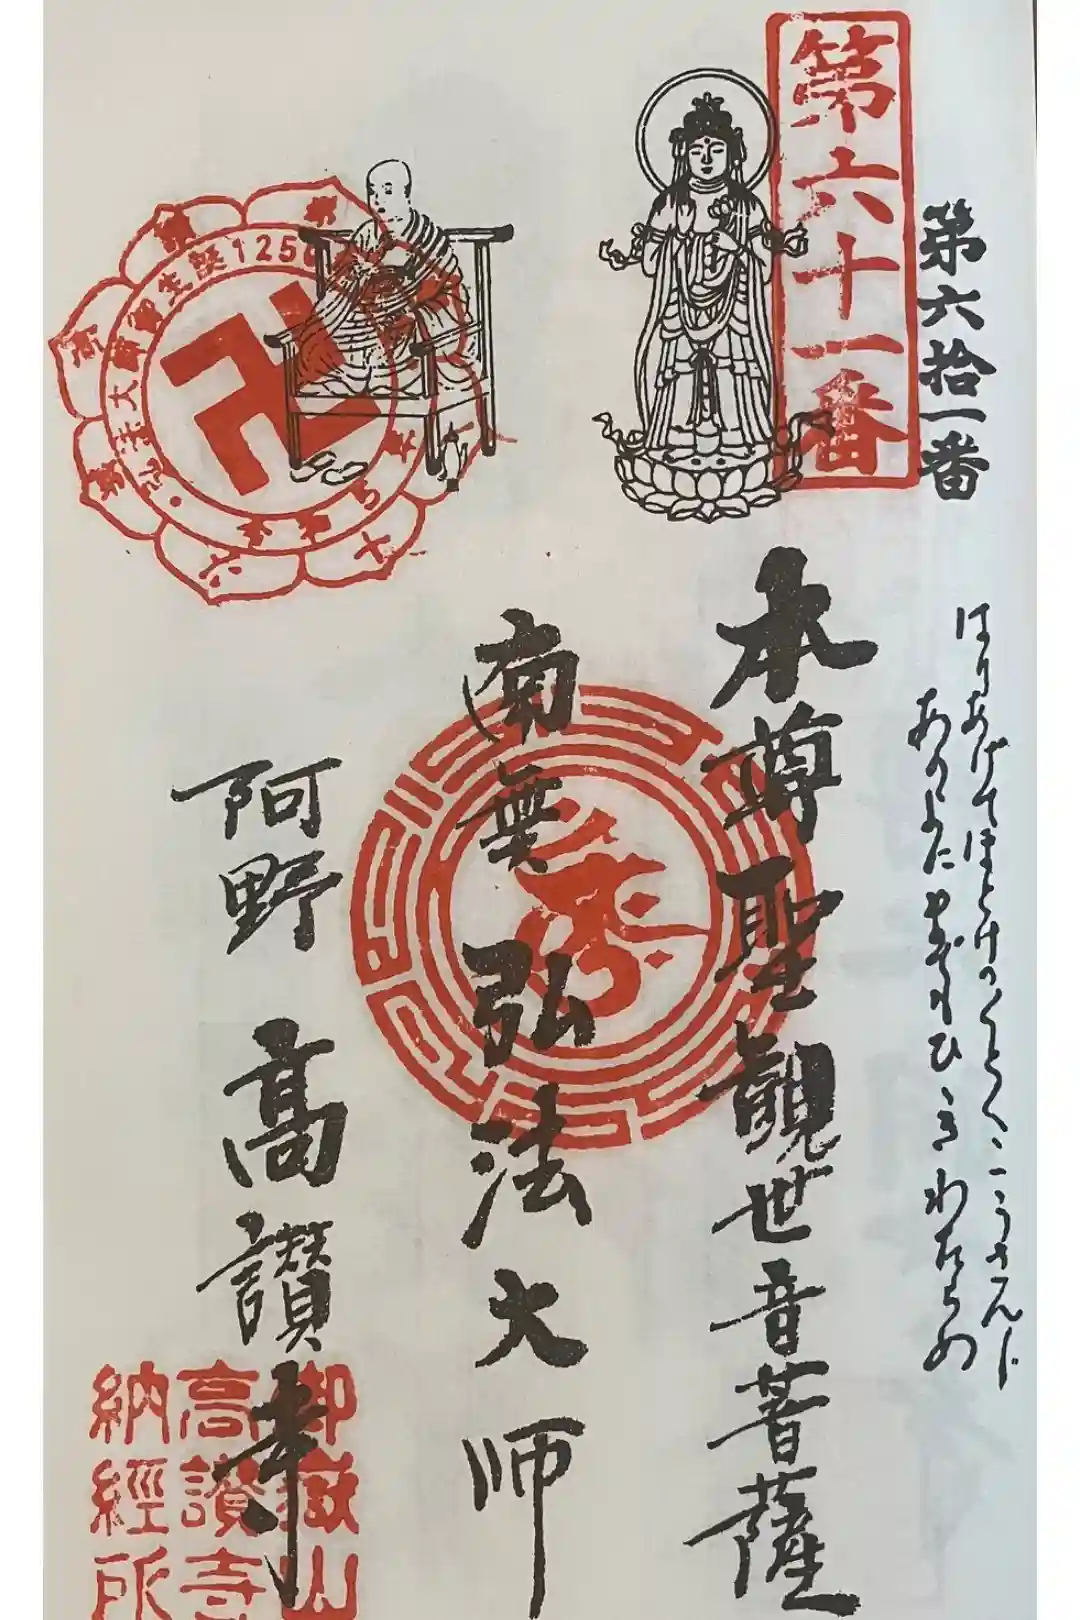 第六拾一番
第六十一番
はりあげてほとけのくどくこうさんじ
あのよたまでもひびきわたらめ
本尊聖観世音菩薩
南無弘法大师
阿野高讃寺
御嶽山
高讃寺
納經所
弘法大師御生誕125